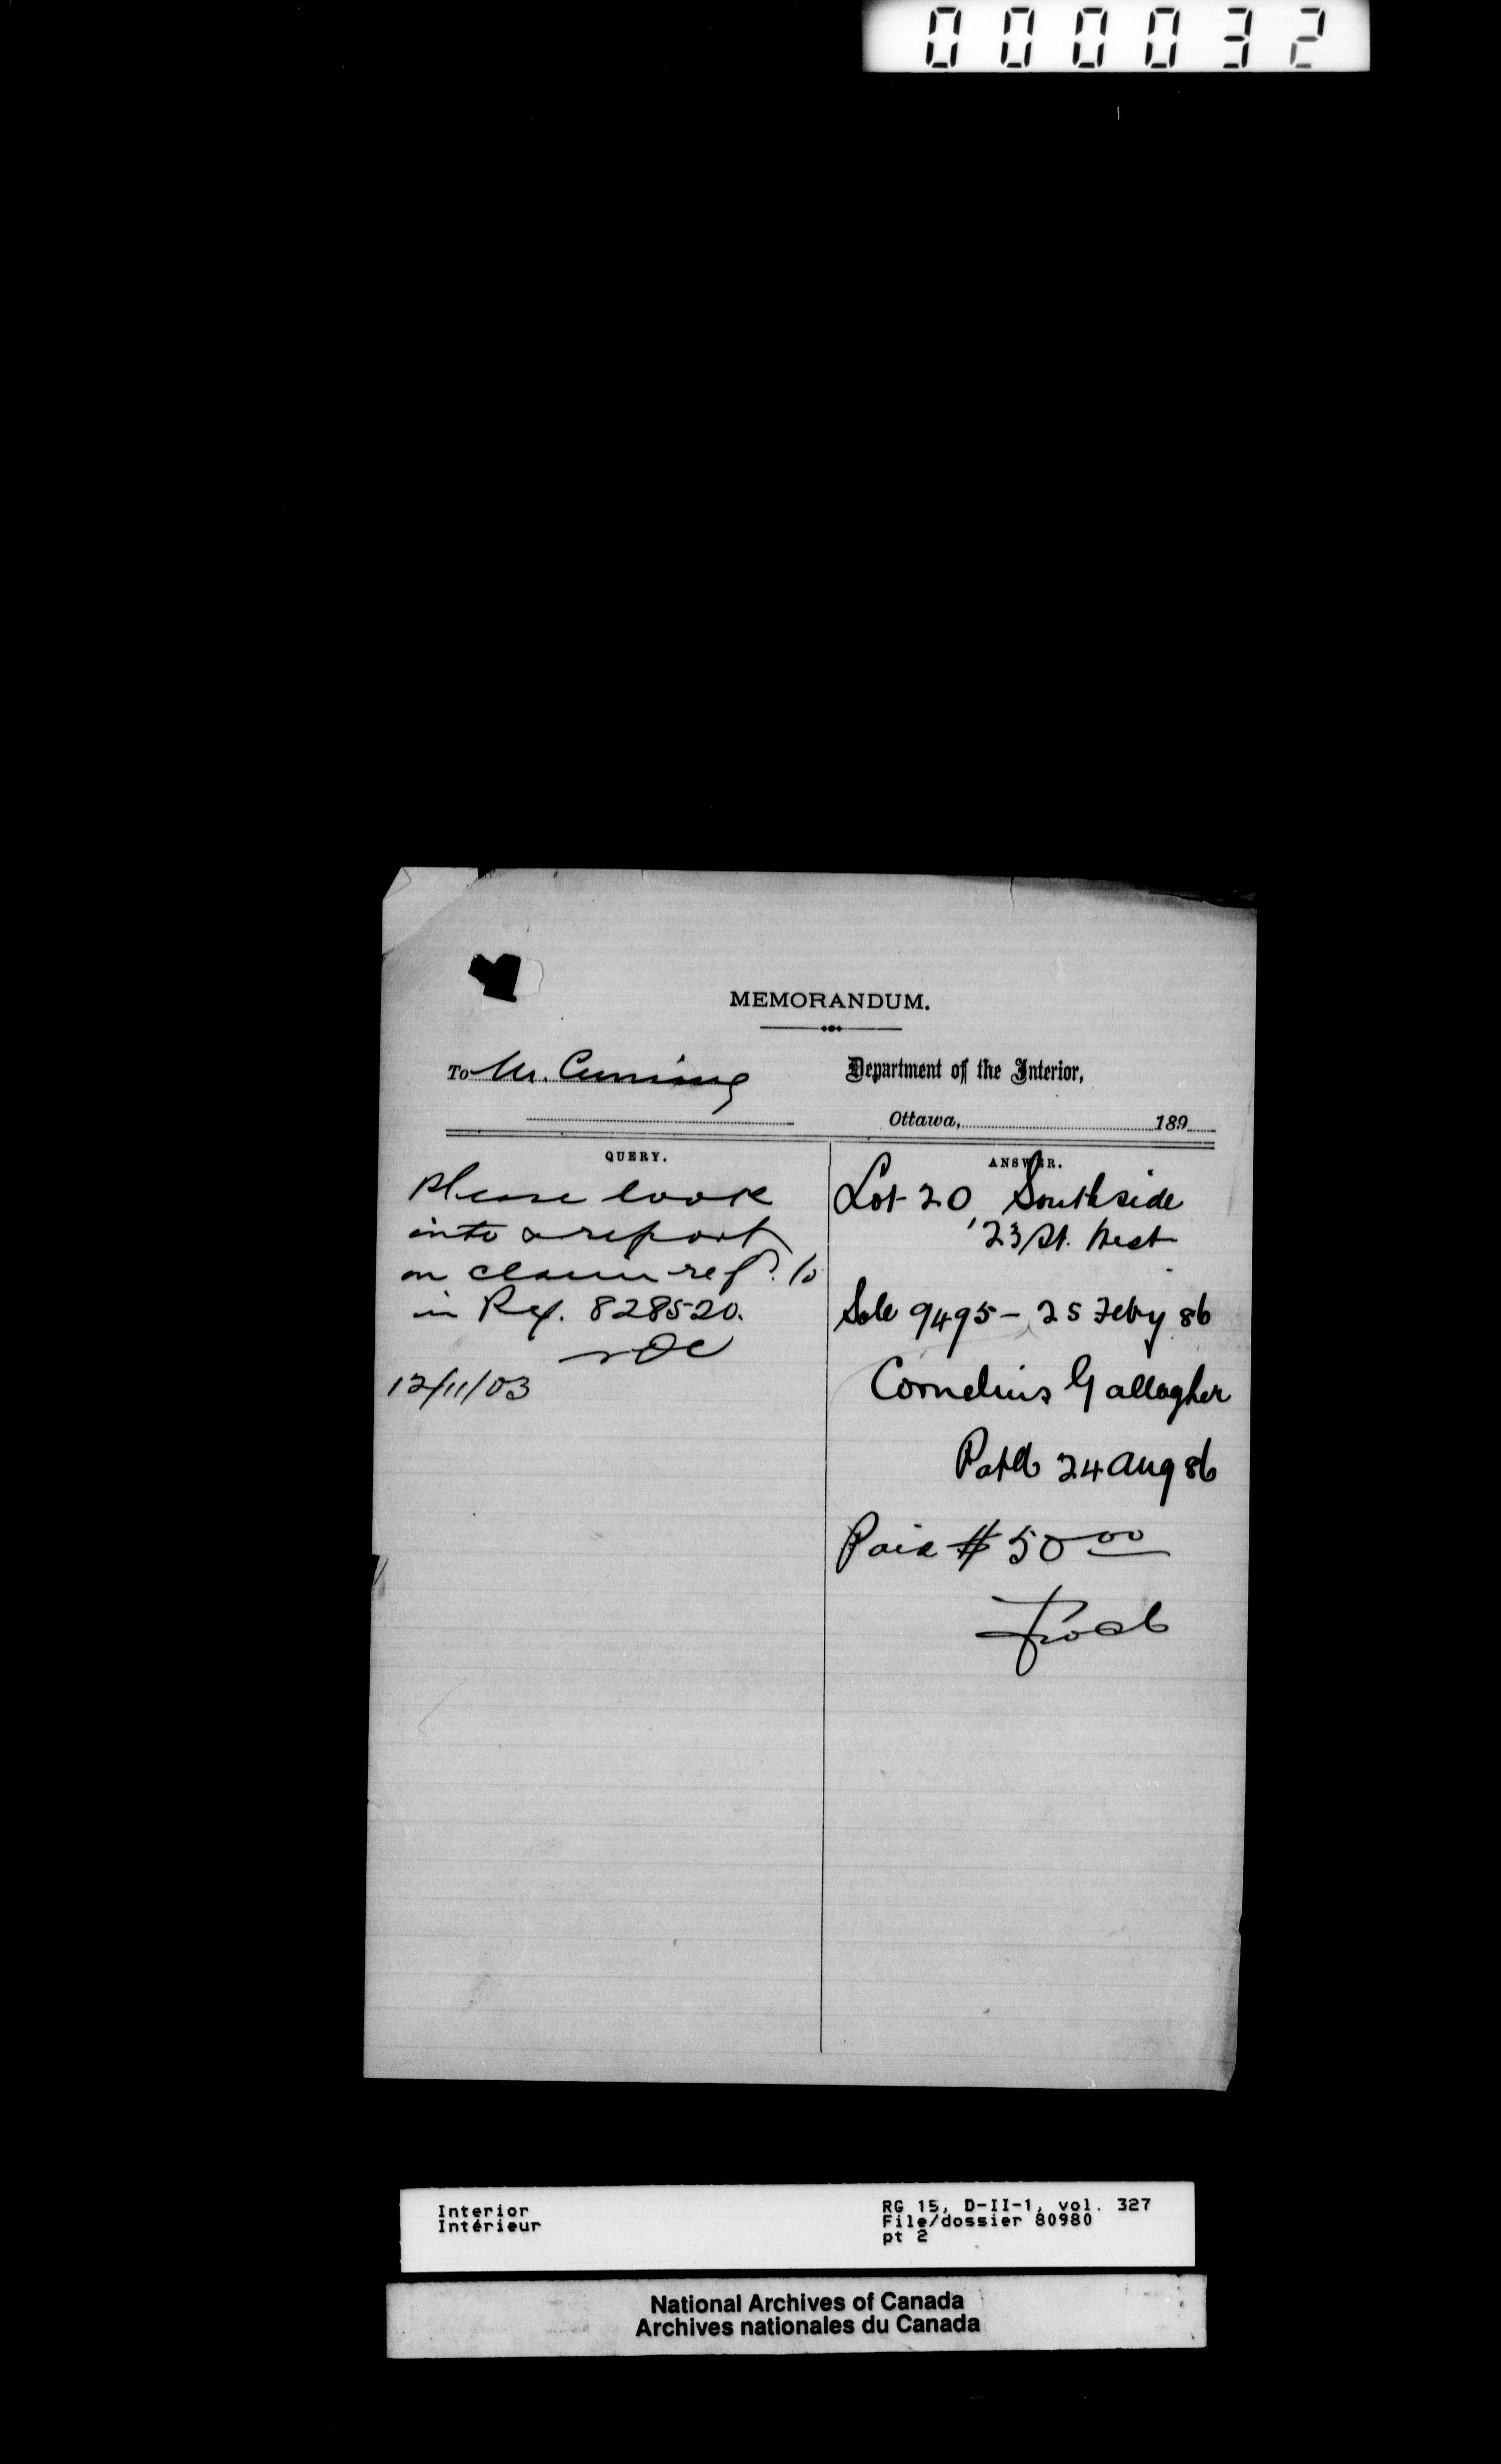 000032
MEMORANDUM.
To Mr. Cuming
Department of the Interior,
Ottawa, 189
QUERY.
Please look
into & report
on claim refd. to
in Ref. 828520.
12/11/03
ANSWER.
Lot 20 Southside
23 St. West
Sale 9495 - 25 Feby 86
Cornelius Gallagher
Patd 24 Aug 86
Paid $50 00
Interior
Intérieur
RG 15, D-II-1, vol. 327
File/dossier 80980
pt 2
National Archives of Canada
Archives nationales du Canada